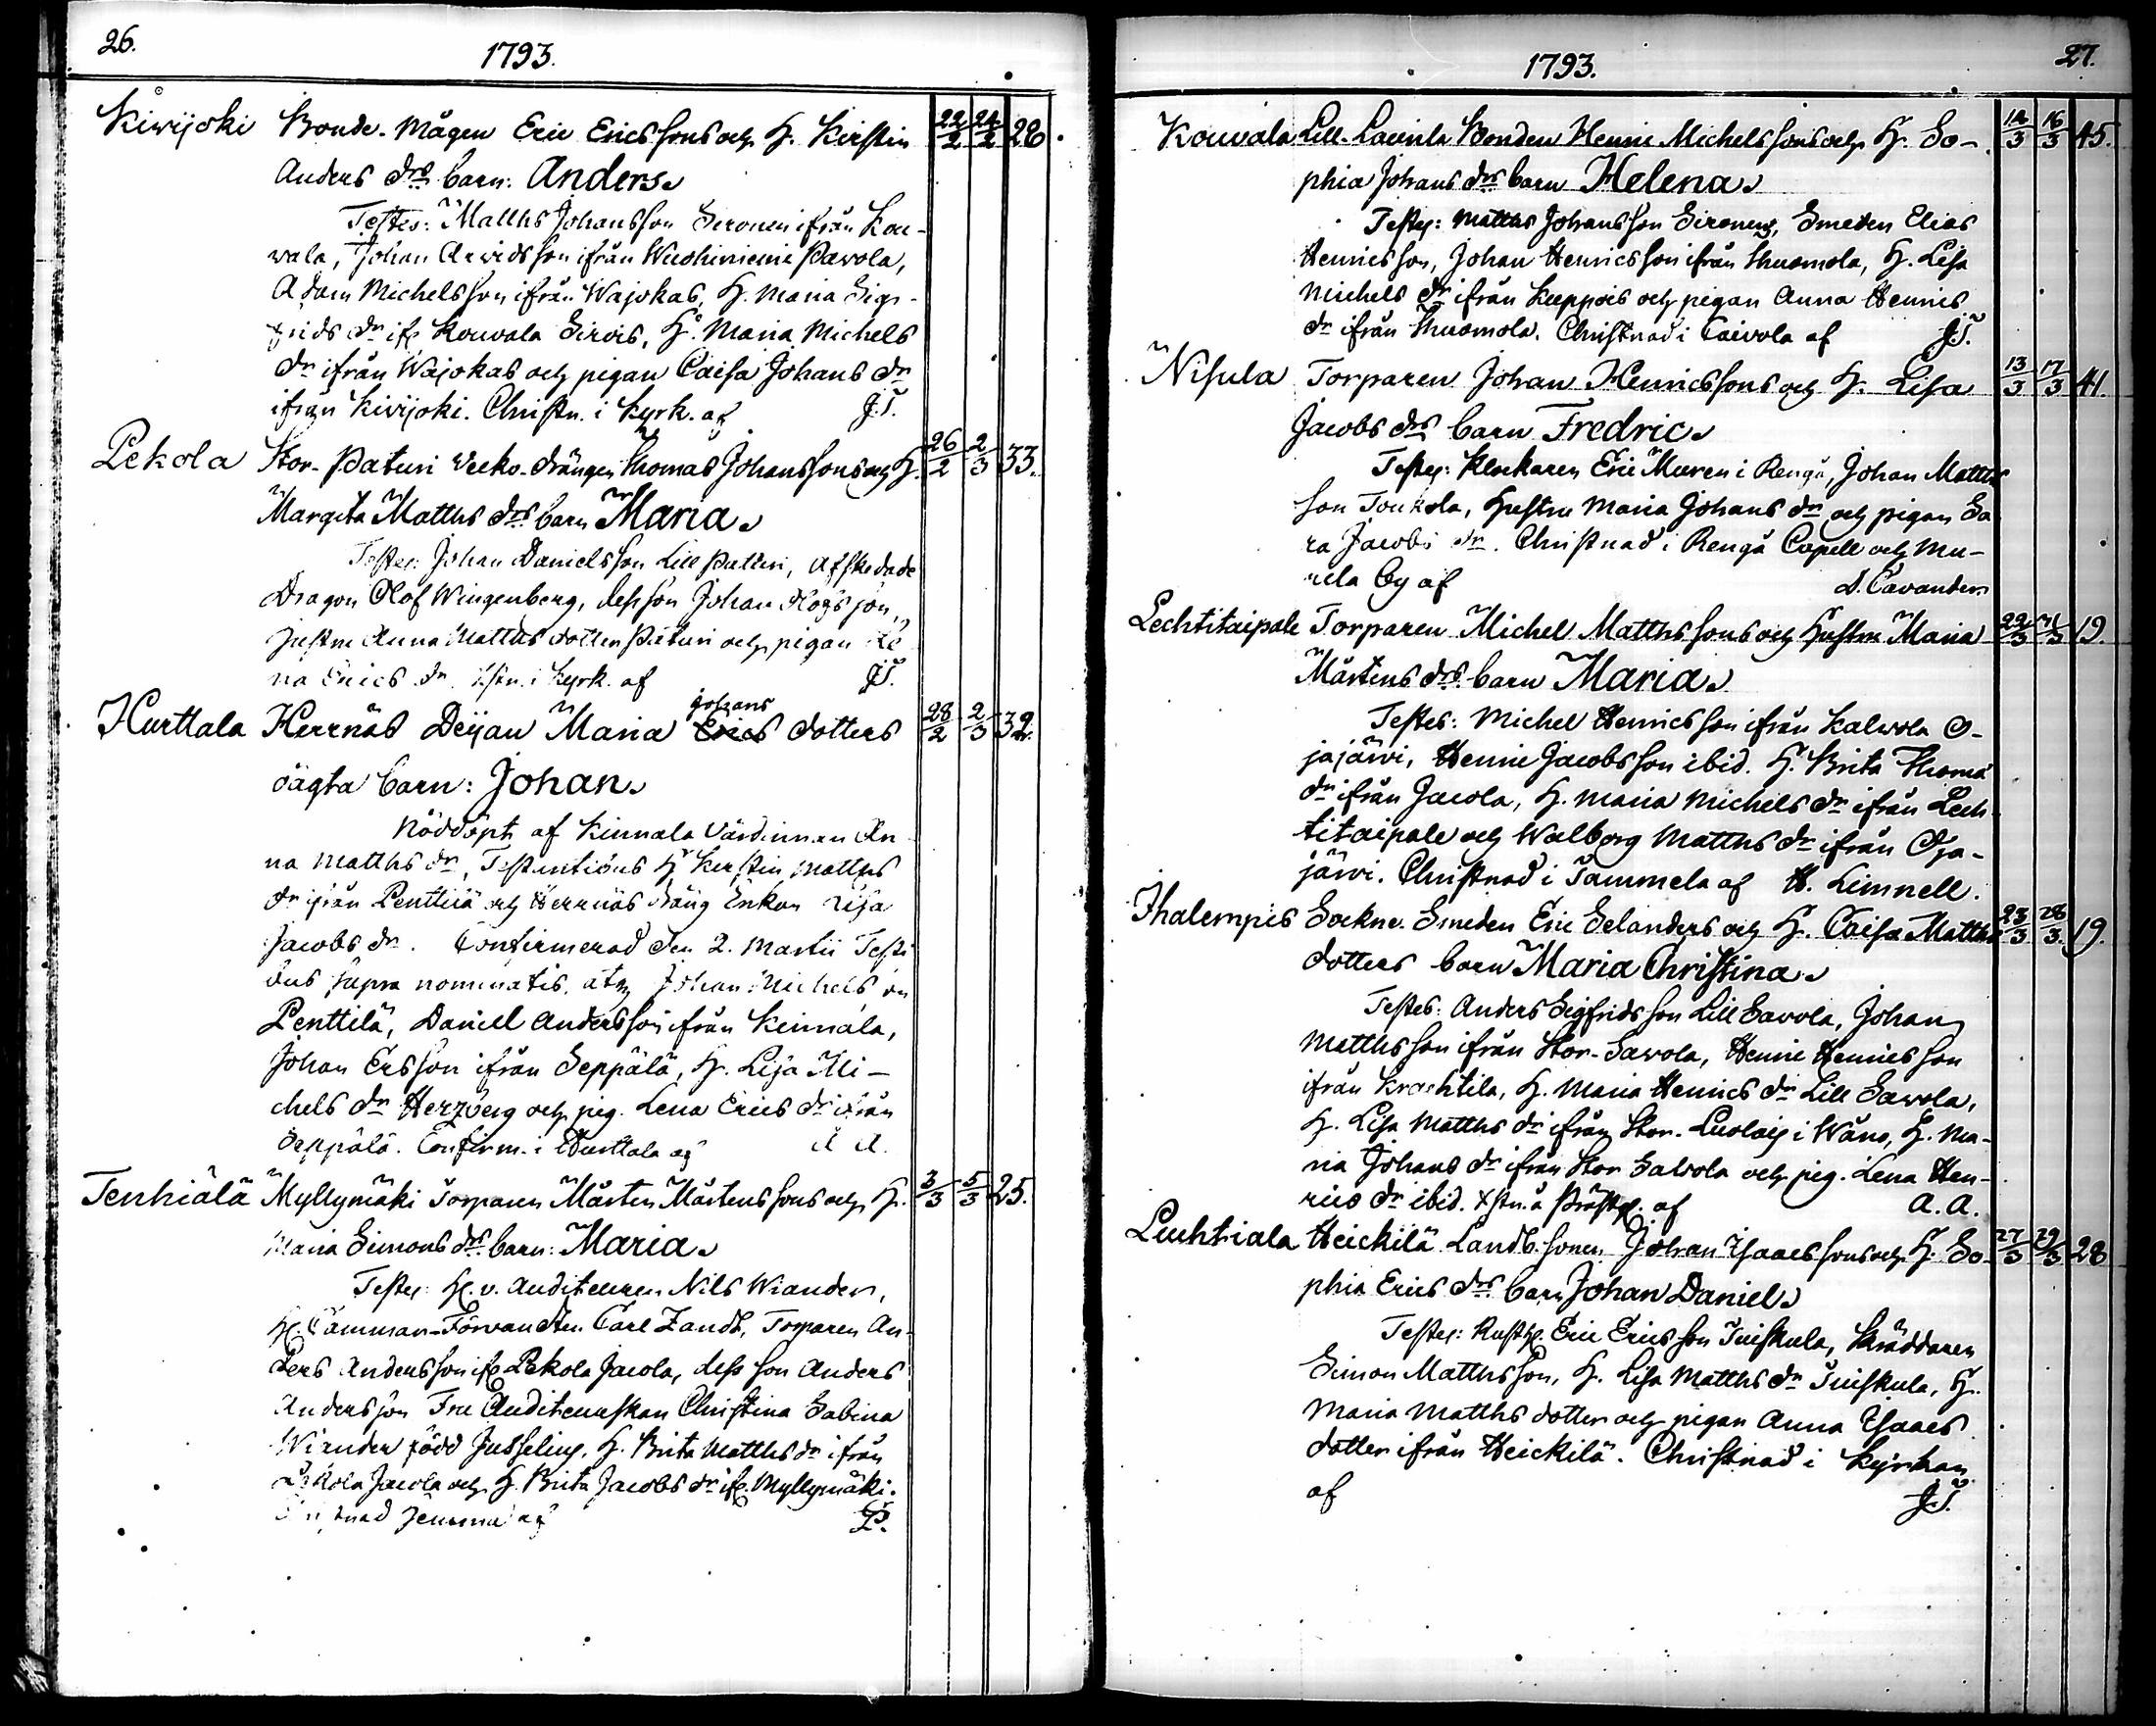 26.
1793.
Kirijoki Bonde-Mågen Eric Ericssons och H. Kirstin 22/2 24/2 28
Anders drs barn: Anders
Testes: Matths Johansson Sironen ifrån Kou-
wala, Johan Arvidsson ifrån Wuohiniemi Pavola,
Adam Michelsson ifrån Wajokas, H. Maria Sigs-
frids dr ifr. Kouvala Sirois, H. Maria Michels
dr ifrån Wajokas och pigan Caisa Johans dr
ifrån Kirijoki. Christn. i Kyrk. af J.T.
Pekola Stor-Paturi Veeko-drängen Thomas Johanssons och H. 26/2 2/3 33.
Margeta Matths drs barn Maria
Testes: Johan Danielsson Lill Patturi, Afskedade
Dragon Olof Wingenberg, dess son Johan Olofsson,
Hustru Anna Matths dotter Paturi och pigan Le
na Erics dr. Xstn. i Kyrk. af J.T.
Hurttala Herrnäs Deijan Maria Johans dotters 28/2 2/3 32.
oägta barn: Johan
Nöddöpt af Kinnala Värdinnan An
na Matths dr, Testantibus H. Kerstin Matths
dr ifrån Penttilä och Herrnäs Dräng Enkan Lisa
Jacobs dr. Confirmerad den 2. Martii Testi
bus supra nominatis. Johan Michelsson
Penttilä, Daniel Andersson ifrån Keinnala,
Johan Ersson ifrån Seppälä, H. Lisa Mi-
chels dr Herzberg och pig. Lena Erics dr ifrån
Seppälä. Confirm. i Hurttala af A A.
Tenhiälä Myllymäki Torparen Mårten Mårtenssons och H. 3/3 5/3 25.
Maria Simons drs barn: Maria
Testes: H. v. Auditeuren Nils Wiander,
H. Cammar-Förvandten Carl Zandt, Torparen An-
ders Andersson ifr. Pekola Jacola, dess son Anders
Andersson Fru Auditeurskan Christina Sabina
Wiander född Jusselius, H. Brita Matths dr ifrån
Pekola Jacola och H. Brita Jacobs dr ifr. Myllymäki.
Christnad hemma af

1793.
27.
Kouvala Lill-Laurila Bonden Henric Michelssons och H. So- 14/3 16/3 45.
phia Johans drs barn Helena
Testes: Matths Johansson Sironen, Smeden Elias
Henricsson, Johan Henricsson ifrån Thuomola, H. Lisa
Michels dr ifrån Keppois och pigan Anna Henrics
dr ifrån Thuomola. Christnad i Caivola af J.T.
Nisula Torparen Johan Henricssons och H. Lisa 13/3 17/3 41.
Jacobs drs barn Fredric
Testes: Klockaren Eric Muren i Rengå, Johan Matths
son Toukola, Hustru Maria Johans dr och pigan Sa
ra Jacobs dr. Christnad i Rengå Capell och Mu-
rula by af D. Cavander.
Lechtitaipale Torparen Michel Matthssons och Hustru Maria 22/3 24/3 19.
Mårtens drs barn Maria
Testes: Michel Henricsson ifrån Kalvola O-
jajärvi, Henric Jacobsson ibid. H. Brita Thomæ
dr ifrån Jacola, H. Maria Michels dr ifrån Lech-
titaipale och Walborg Matths dr ifrån Oja-
järvi. Christnad i Tammela af H. Limnell.
Ihalempis Sockne-Smeden Eric Selanders och H. Caisa Matths 23/3 28/3. 19.
dotters barn Maria Christina
Testes: Anders Sigfridsson Lill Savola, Johan
Matthsson ifrån Stor-Savola, Henric Henricsson
ifrån Krachtila, H. Maria Henrics dr Lill Savola,
H. Lisa Matths dr ifrån Stor-Luolais i Wåno, H. Ma-
ria Johans dr ifrån Stor Savola och pig. Lena Hen-
rics dr ibid. Xstn. å Prästg. af A.A.
Luchtiala Heickilä Landb. sonen Johan Isaacssons och H. So- 27/3 29/3 28
phia Erics drs barn Johan Daniel
Testes: Rusth. Eric Ericsson Tuiskula, Skräddaren
Simon Matthsson, H. Lisa Matths dr Tuiskula, H.
Maria Matths dotter och pigan Anna Isaacs
dotter ifrån Heickilä. Christnad i Kyrkan
af J.T.